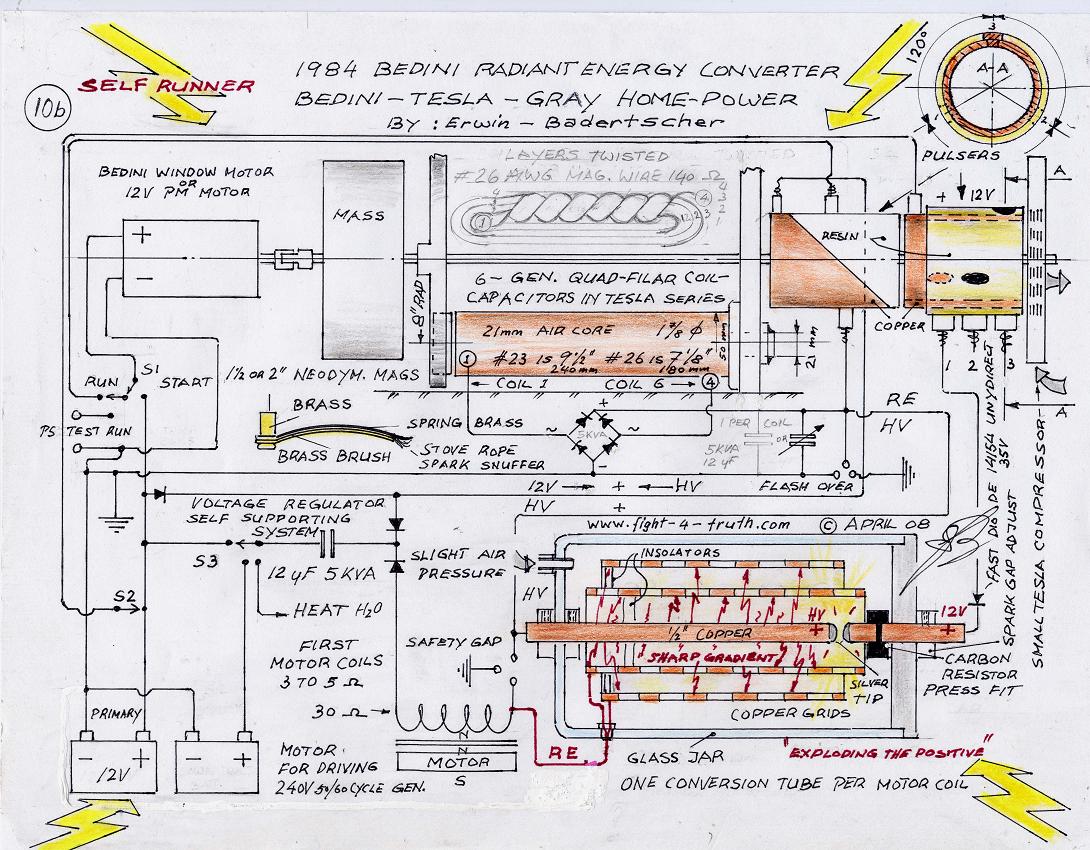 10b
SELF RUNNER
1984 BEDINI RADIANT ENERGY CONVERTER
BEDINI - TESLA - GRAY HOME-POWER
BY : Erwin - Badertscher
120°
3
A-A
2
BEDINI WINDOW MOTOR
OR
12V PM MOTOR
+
-
MASS
LAYERS TWISTED
#26 AWG MAG. WIRE 140 Ω
1
4
4
3
2
1
PULSERS
A
+ 12V
RESIN
COPPER
8" RAD
6- GEN. QUAD-FILAR COIL-
CAPACITORS IN TESLA SERIES
21mm AIR CORE 1 7/8 φ
#23 IS 9 1/2" #26 IS 7 1/8"
240mm 180mm
50mm
21 mm
1
COIL 1 COIL 6
4
1 1/2 OR 2" NEODYM. MAGS
1 2 3
A
S1
RUN
START
PS TEST RUN
BRASS
SPRING BRASS
BRASS BRUSH
STOVE ROPE
SPARK SNUFFER
+
~ 5KVA ~
-
1 PER COIL
OR
5KVA
12 μF
RE
HV
FLASH OVER
12V → + ← HV
HV +
VOLTAGE REGULATOR
SELF SUPPORTING
SYSTEM
S3
12 μF 5KVA
HEAT H2O
S2
www.fight-4-truth.com © APRIL 08
SLIGHT AIR
PRESSURE
INSOLATORS
HV
1/2" COPPER
HV
+
12V
+
SHARP GRADIENT
SAFETY GAP
SILVER
TIP
CARBON
RESISTOR
PRESS FIT
COPPER GRIDS
FAST DIODE 14154 UNYDIRECT
35V
SPARK GAP ADJUST
SMALL TESLA COMPRESSOR
FIRST
MOTOR COILS
3 TO 5 Ω
30 Ω
N
MOTOR
S
RE.
GLASS JAR
"EXPLODING THE POSITIVE"
ONE CONVERSION TUBE PER MOTOR COIL
PRIMARY
- +
12V
- +
MOTOR
FOR DRIVING
240V 50/60 CYCLE GEN.